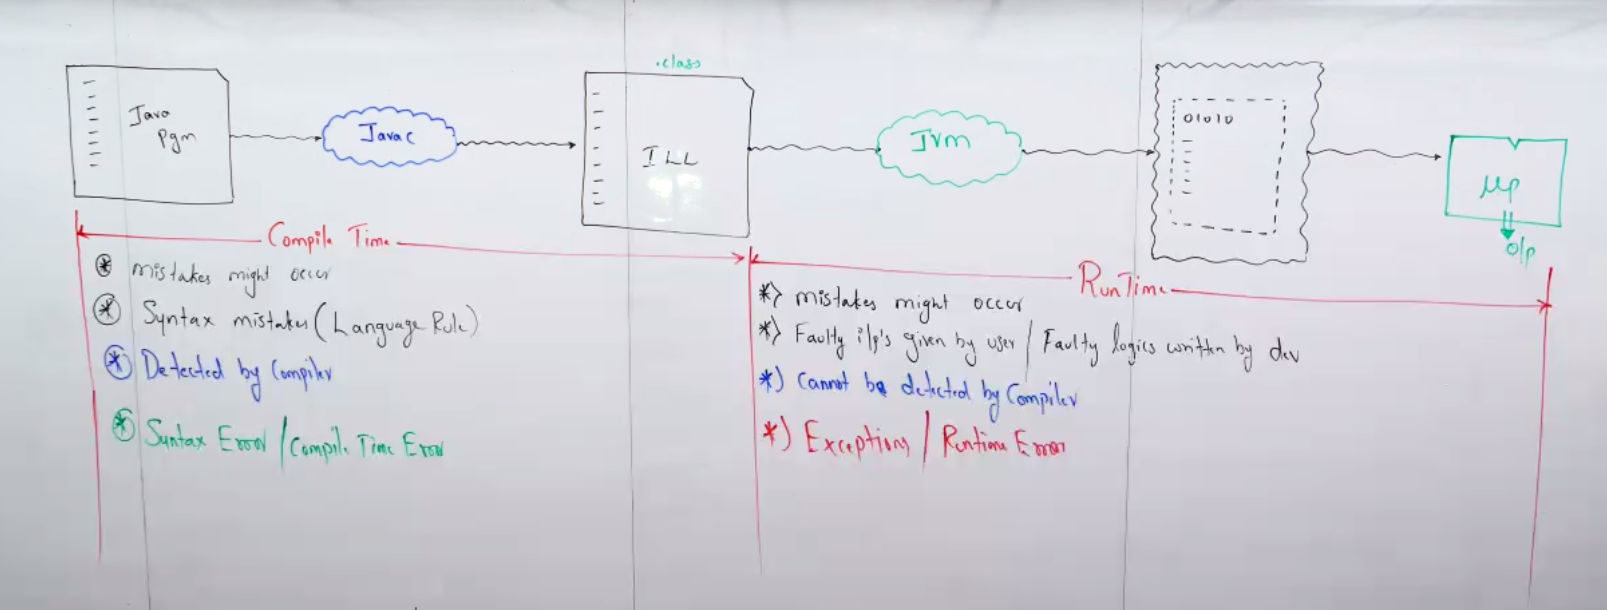 .class
Java
Pgm
Javac
ILL
Jvm
01010
μp
o/p
Compile Time
* mistakes might occur
* Syntax mistakes (Language Rule)
* Detected by Compiler
* Syntax Error / Compile Time Error
RunTime
*) mistakes might occur
*) Faulty i/p's given by user / Faulty logics written by dev
*) Cannot be detected by Compiler
*) Exceptions / Runtime Error